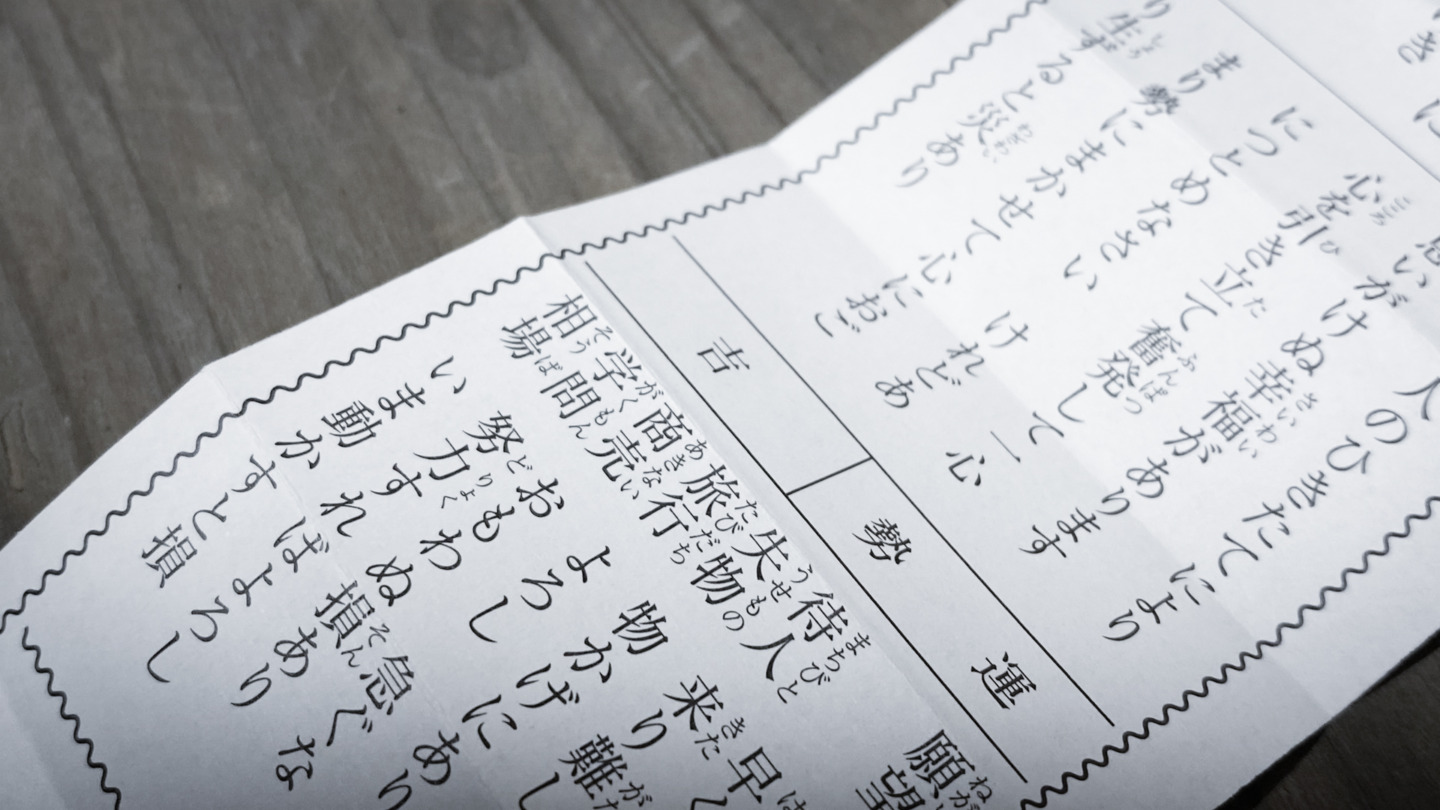 人のひきたてにより
思いがけぬ幸福があります
心を引き立て奮発して一心
につとめなさい けれどあ
まり勢にまかせて心におご
り生ずると災あり
運勢 吉
願望
早
待人 来り難し
失物 物かげにあり
旅行 よろし 急ぐな
商売 おもわぬ損あり
学問 努力すればよろし
相場 いま動かすと損